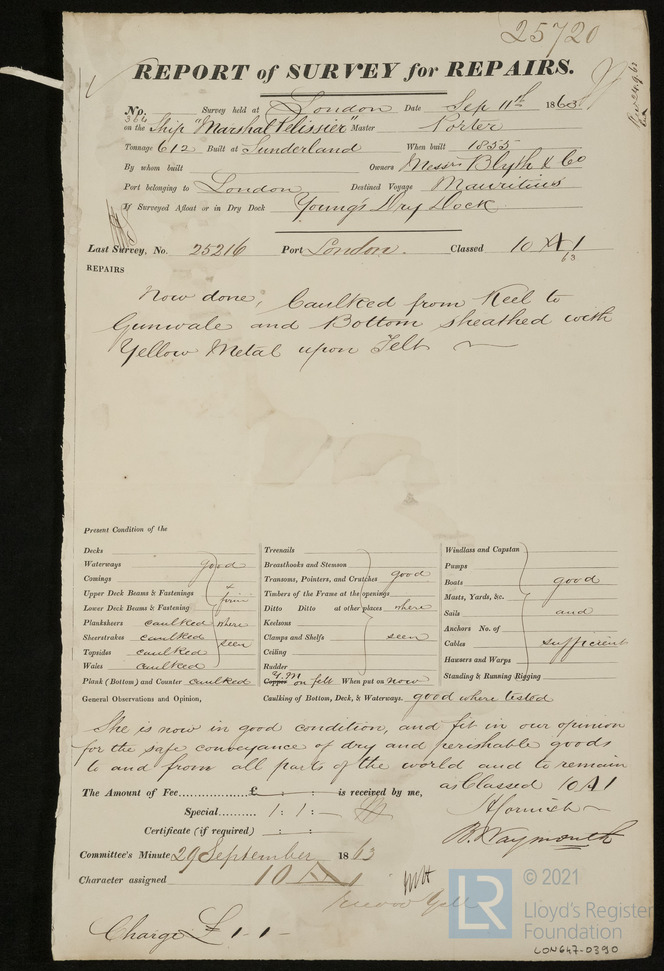 25720
REPORT of SURVEY for REPAIRS.
No. 366 Survey held at London Date Sep 11th 1863
on the Ship "Marshal Pelissier" Master Porter
Tonnage 612 Built at Sunderland When built 1855
By whom built Owners Messrs Blyth & Co
Port belonging to London Destined Voyage Mauritius
If Surveyed Afloat or in Dry Dock Young's Dry Dock
Last Survey, No. 25216 Port London. Classed 10 A 1
63
REPAIRS
Now done, Caulked from Keel to
Gunwale and Bottom sheathed with
Yellow Metal upon Felt
Present Condition of the
Decks
Waterways good
Comings
Upper Deck Beams & Fastenings + firm
Lower Deck Beams & Fastening
Planksheers caulked where
Sheerstrakes caulked
Topsides caulked seen
Wales caulked
Plank (Bottom) and Counter caulked
Treenails
Breasthooks and Stemson
Transons, Pointers, and Crutches good
Timbers of the Frame at the openings
Ditto Ditto at other places where
Keelsons
Clamps and Shelfs seen
Ceiling
Rudder
Copper Y.M on felt When put on now
Windlass and Capstan
Pumps
Boats good
Masts, Yards, &c.
Sails and
Anchors No. of
Cables sufficient
Hawsers and Warps
Standing & Running Rigging
General Observations and Opinion, Caulking of Bottom, Deck, & Waterways. good where tested
She is now in good condition, and fit in our opinion
for the safe conveyance of dry and perishable goods
to and from all parts of the world and to remain
as Classed 10 A 1
The Amount of Fee............... £ : : is received by me,
Special......... 1 : 1 : —
Certificate (if required) : :
B. Waymouth
Committee's Minute 29 September 1863
Character assigned 10 A 1
Charge £ 1 - 1 -
LR
© 2021
Lloyd's Register
Foundation
LON647-0390